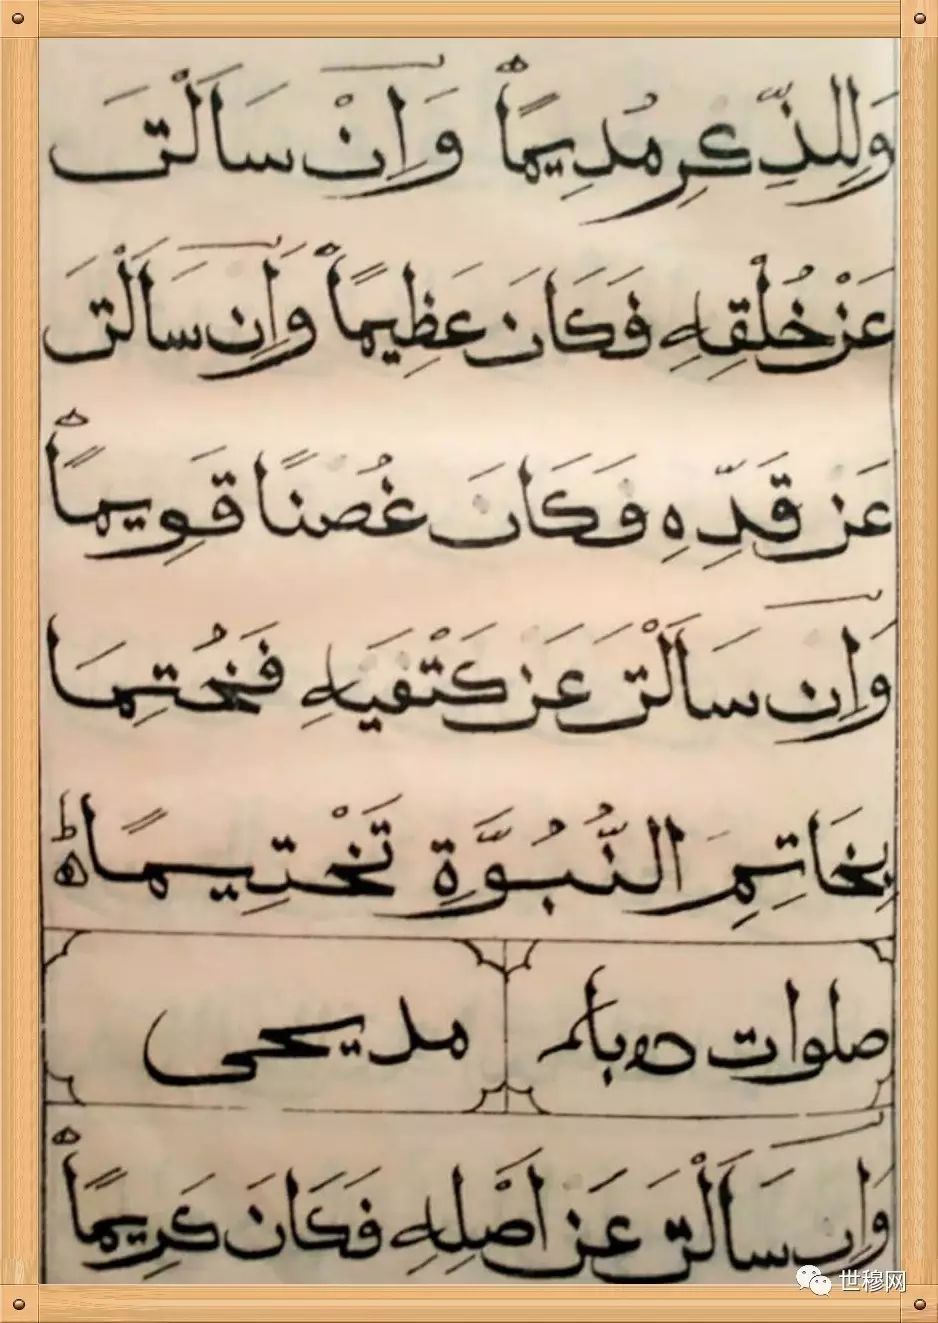 وَلِلذِّكْرِ مُدِيمًا وَاِنْ سَاَلْتَ
عَنْ خُلْقِهٖ فَكَانَ عَظِيمًا وَاِنْ سَاَلْتَ
عَنْ قَدِّهٖ فَكَانَ غُصْنًا قَوِيمًا
وَاِنْ سَاَلْتَ عَنْ كَتْفَيْهٖ فَخُتِمَا
بِخَاتِمِ النُّبُوَّةِ تَخْتِيمًا
صلوات مديحى
وَاِنْ سَاَلْتَ عَنْ اَصْلِهٖ فَكَانَ كَرِيمًا
世穆网